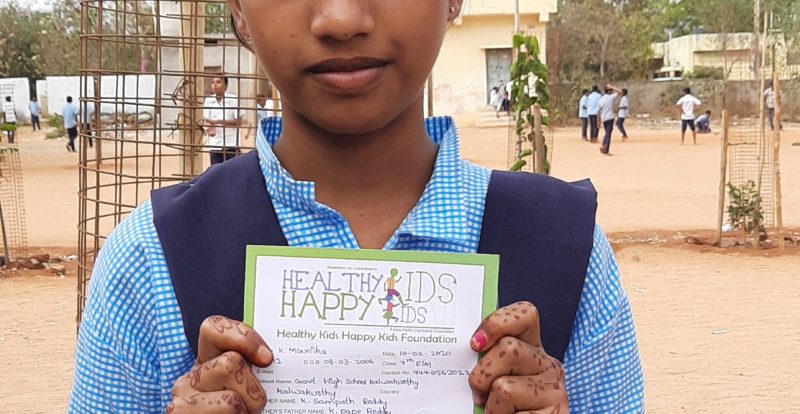 HEALTHY KIDS
HAPPY KIDS
A Non-Profit Charitable Foundation
Healthy Kids Happy Kids Foundation
K. Mounika Date: 10-02-2020
D.O.B 08-03-2006 Class: 7th E/M
Contact No:
School Name: Govt High School Kalwakurthy
Kalwakurthy Country
FATHER NAME: K. Sampath Reddy
FATHER'S FATHER NAME: K. Pape Reddy